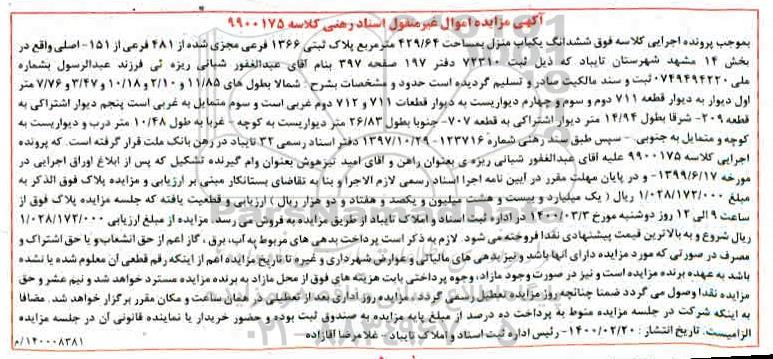 آگهی مزایده اموال غیرمنقول اسناد رهنی کلاسه ۹۹۰۰۱۷۵
بموجب پرونده اجرایی کلاسه فوق ششدانگ یکباب منزل بمساحت ۴۲۹/۶۴ مترمربع پلاک ثبتی ۱۳۶۶ فرعی مجزی شده از ۴۸۱ فرعی از ۱۵۱- اصلی واقع در
بخش ۱۴ مشهد شهرستان تایباد که ذیل ثبت ۷۲۳۱۰ دفتر ۱۹۷ صفحه ۳۹۷ بنام آقای عبدالغفور شبانی ریزه ئی فرزند عبدالرسول بشماره
ملی ۰۷۴۹۴۹۴۲۲۰ ثبت و سند مالکیت صادر و تسلیم گردیده است حدود و مشخصات بشرح : شمالا بطول های ۱۱/۸۵ و ۲/۱۰ و ۱۰/۱۸ و ۳/۴۷ و ۷/۷۶ متر
اول دیوار به دیوار قطعه ۷۱۱ دوم و سوم و چهارم دیواریست به دیوار قطعات ۷۱۱ و ۷۱۲ دوم غربی است و سوم متمایل به غربی است پنجم دیوار اشتراکی به
قطعه ۲۰۹- شرقا بطول ۱۴/۹۴ متر دیوار اشتراکی به قطعه ۷۰۷- جنوبا بطول ۲۶/۸۳ متر دیواریست به کوچه - غربا به طول ۱۰/۴۸ متر درب و دیواریست به
کوچه و متمایل به جنوبی - سپس طبق سند رهنی شماره ۱۲۳۷۱۶-۱۳۹۷/۱۰/۲۹ دفتر اسناد رسمی ۳۲ تایباد در رهن بانک ملت قرار گرفته است. که پرونده
اجرایی کلاسه ۹۹۰۰۱۷۵ علیه آقای عبدالغفور شبانی ریزه ی بعنوان راهن و آقای امید تیزهوش بعنوان وام گیرنده تشکیل که پس از ابلاغ اوراق اجرایی در
مورخه ۱۳۹۹/۶/۱۷- و در پایان مهلت مقرر در آیین نامه اجرا اسناد رسمی لازم الاجرا و بنا به تقاضای بستانکار مبنی بر ارزیابی و مزایده پلاک فوق الذکر به
مبلغ ۱/۰۲۸/۱۷۲/۰۰۰ ریال ( یک میلیارد و بیست و هشت میلیون و یکصد و هفتاد و دو هزار ریال ) ارزیابی و قطعیت یافته که جلسه مزایده پلاک فوق از
ساعت ۹ الی ۱۲ روز دوشنبه مورخ ۱۴۰۰/۰۳/۳ در اداره ثبت اسناد و املاک تایباد از طریق مزایده به فروش می رسد. مزایده از مبلغ ارزیابی ۱/۰۲۸/۱۷۲/۰۰۰
ریال شروع و به بالاترین قیمت پیشنهادی نقدا فروخته می شود. لازم به ذکر است پرداخت بدهی های مربوط به آب، برق ، گاز اعم از حق انشعاب و یا حق اشتراک و
مصرف در صورتی که مورد مزایده دارای آنها باشد و نیز بدهی های مالیاتی و عوارض شهرداری و غیره تا تاریخ مزایده اعم از اینکه رقم قطعی آن معلوم شده یا نشده
باشد به عهده برنده مزایده است و نیز در صورت وجود مازاد، وجوه پرداختی بابت هزینه های فوق از محل مازاد به برنده مزایده مسترد خواهد شد و نیم عشر و حق
مزایده نقدا وصول می گردد ضمنا چنانچه روز مزایده تعطیل رسمی گردد، مزایده روز اداری بعد از تعطیلی در همان ساعت و مکان مقرر برگزار خواهد شد. مضافا
به اینکه شرکت در جلسه مزایده منوط به پرداخت ده درصد از مبلغ پایه مزایده به صندوق ثبت بوده و حضور خریدار یا نماینده قانونی آن در جلسه مزایده
الزامیست. تاریخ انتشار : ۱۴۰۰/۰۲/۲۰- رئیس اداره ثبت اسناد و املاک تایباد - غلامرضا آقازاده
۱۴۰۰۰۸۳۸۱/م